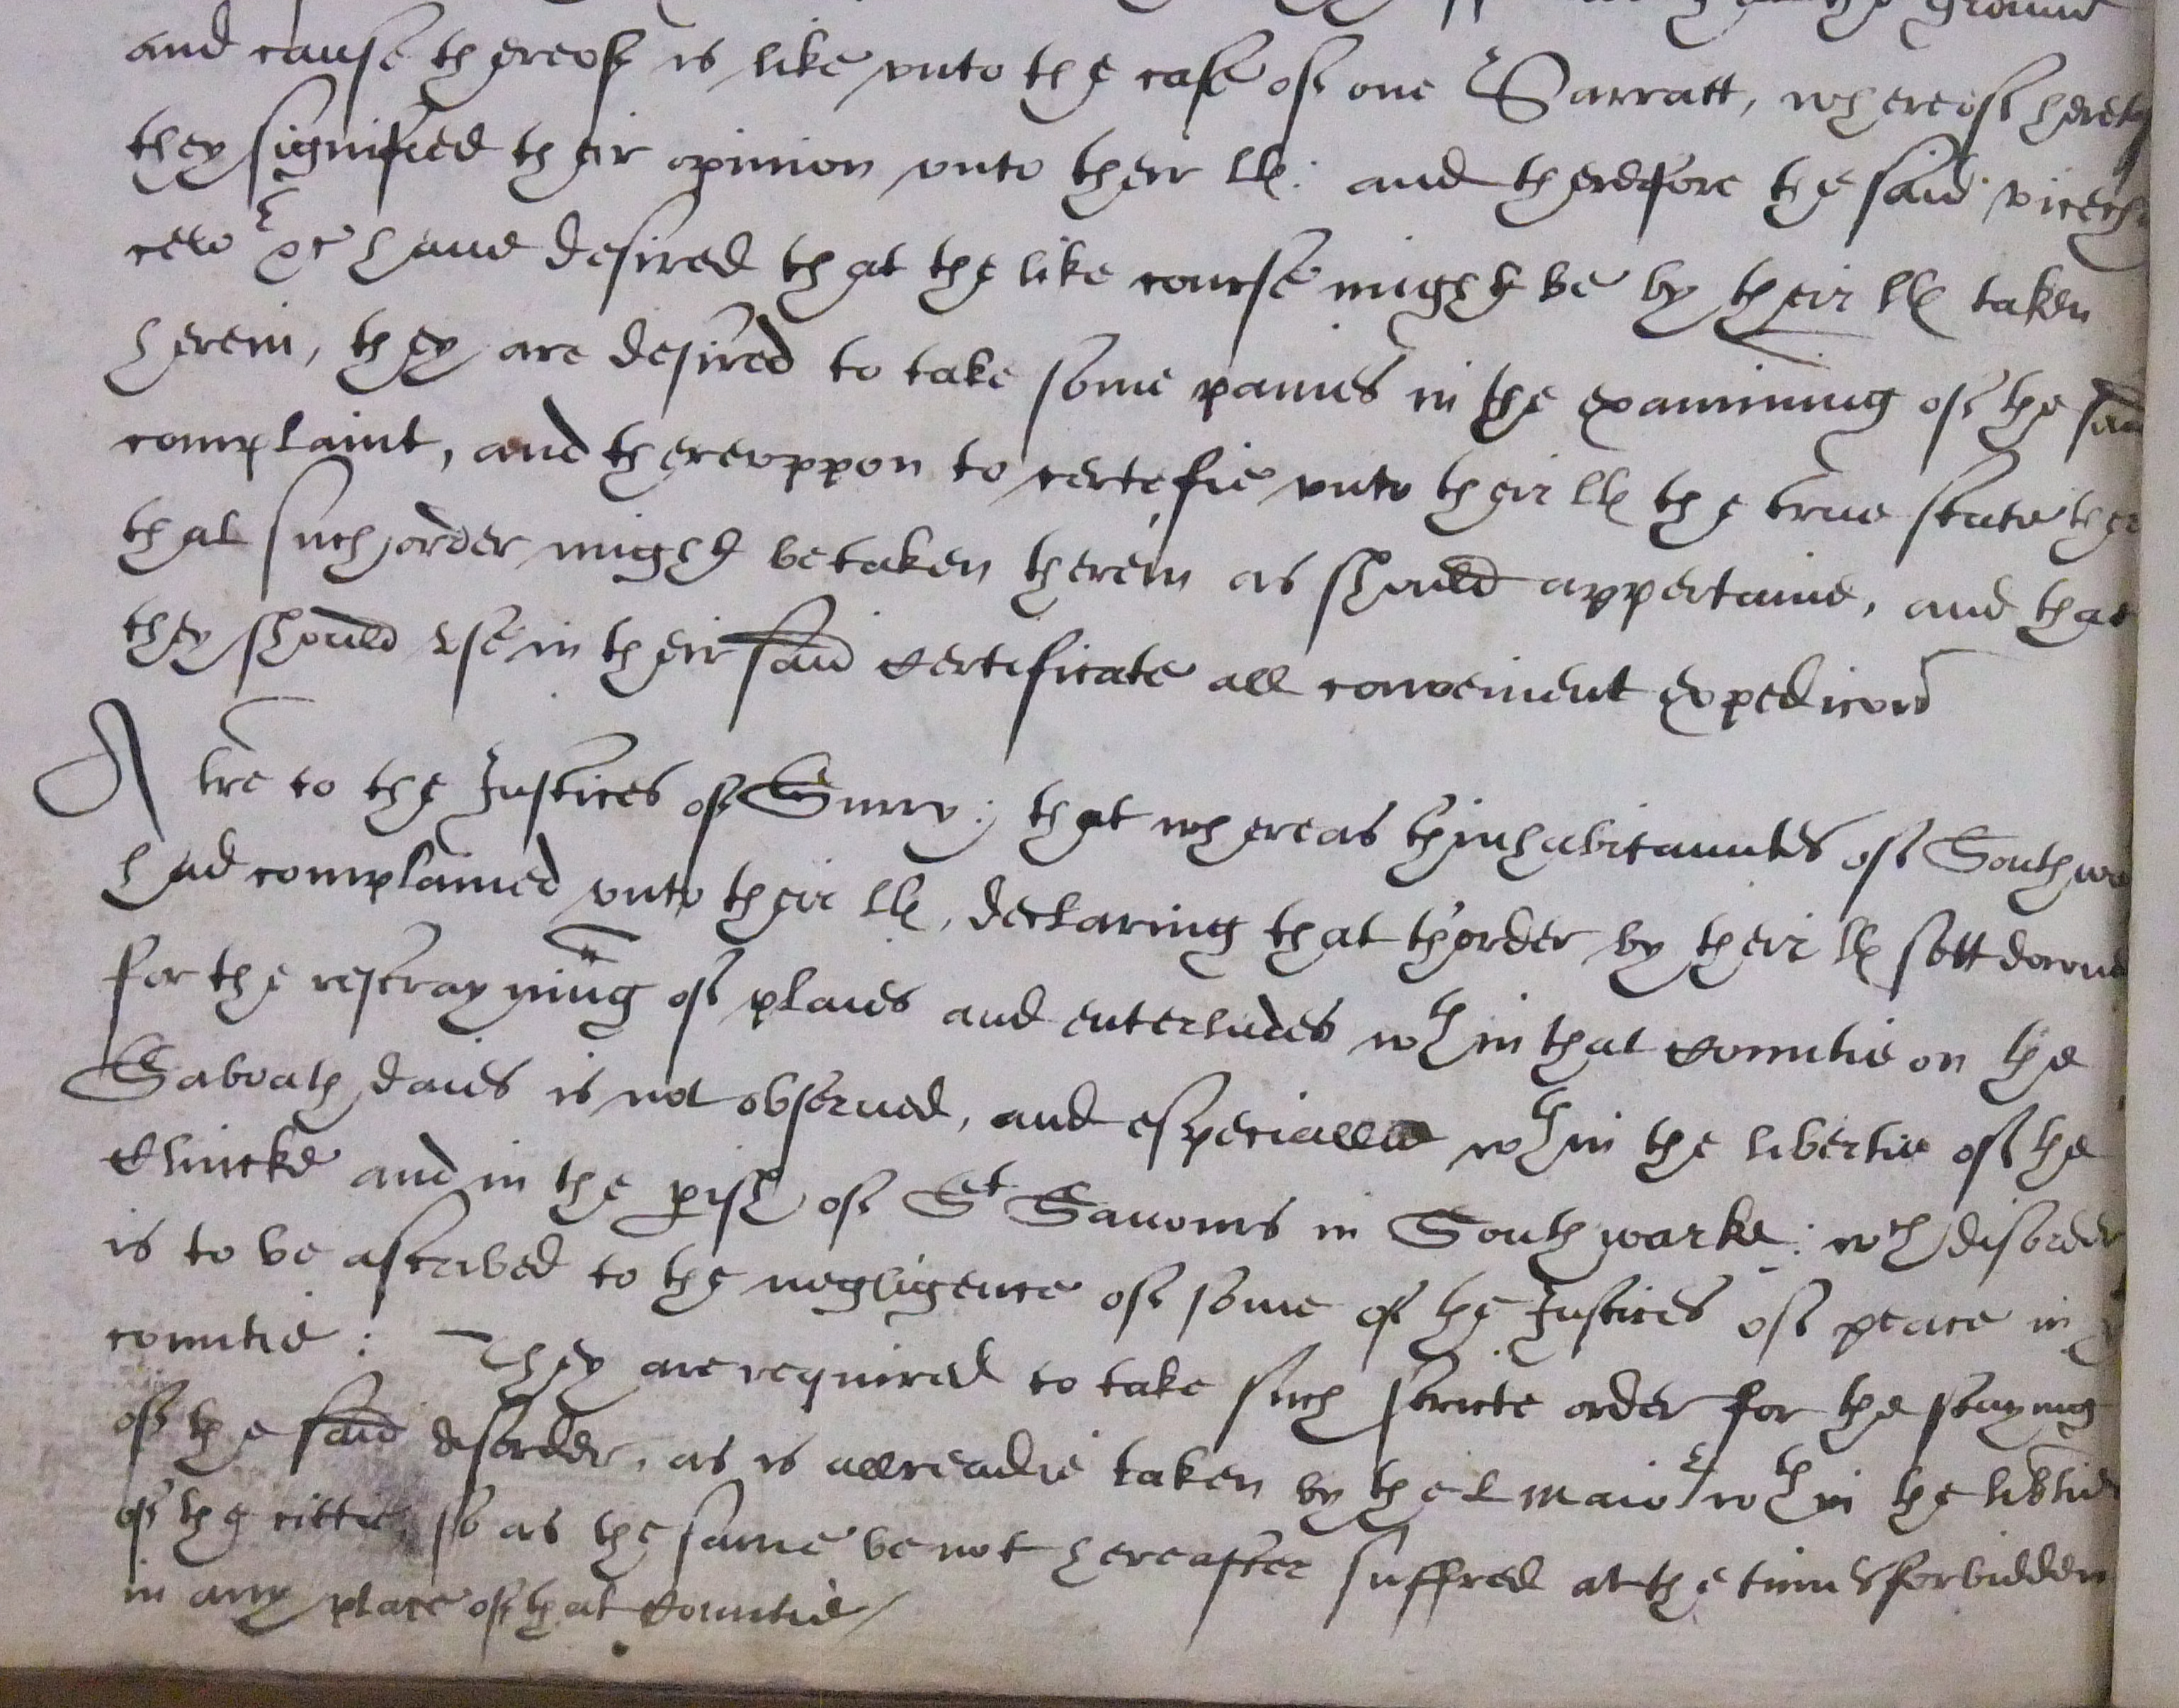 ground
and cause thereof is like vnto the case of one Sarratt, whereof hereto
they signified their opinion vnto their llp: and therefore the said vicech
cell^r &c haue desired that the like course might be by their llp taken
herein, they are desired to take some paines in the examining of the said
complaint, and therevppon to certefie vnto their llp the true state ther
that such order might be taken therein as should appertaine, and that
they should vse in their said certificate all convenient expedicon
A lre to the Justices of Surry; that whereas thinhabitauntes of Southwa
had complained vnto their llp, declaring that thorder by their llp sett downe
for the restrayning of plaies and enterludes w^th in that countie on the
Saboath daies is not obserued, and especiallie w^th in the libertie of the
Clincke and in the pish of S^t Sauoiurs in Southwarke: w^ch disorder
is to be ascribed to the negligence of some of the Justices of peace in y
countie: They are required to take such stricte order for the staying
of the said disorder, as is allreadie taken by the L Maio^r w^th in the libtie
of the cittie, so as the same be not hereafter suffred at the times forbidden
in any place of that countie/